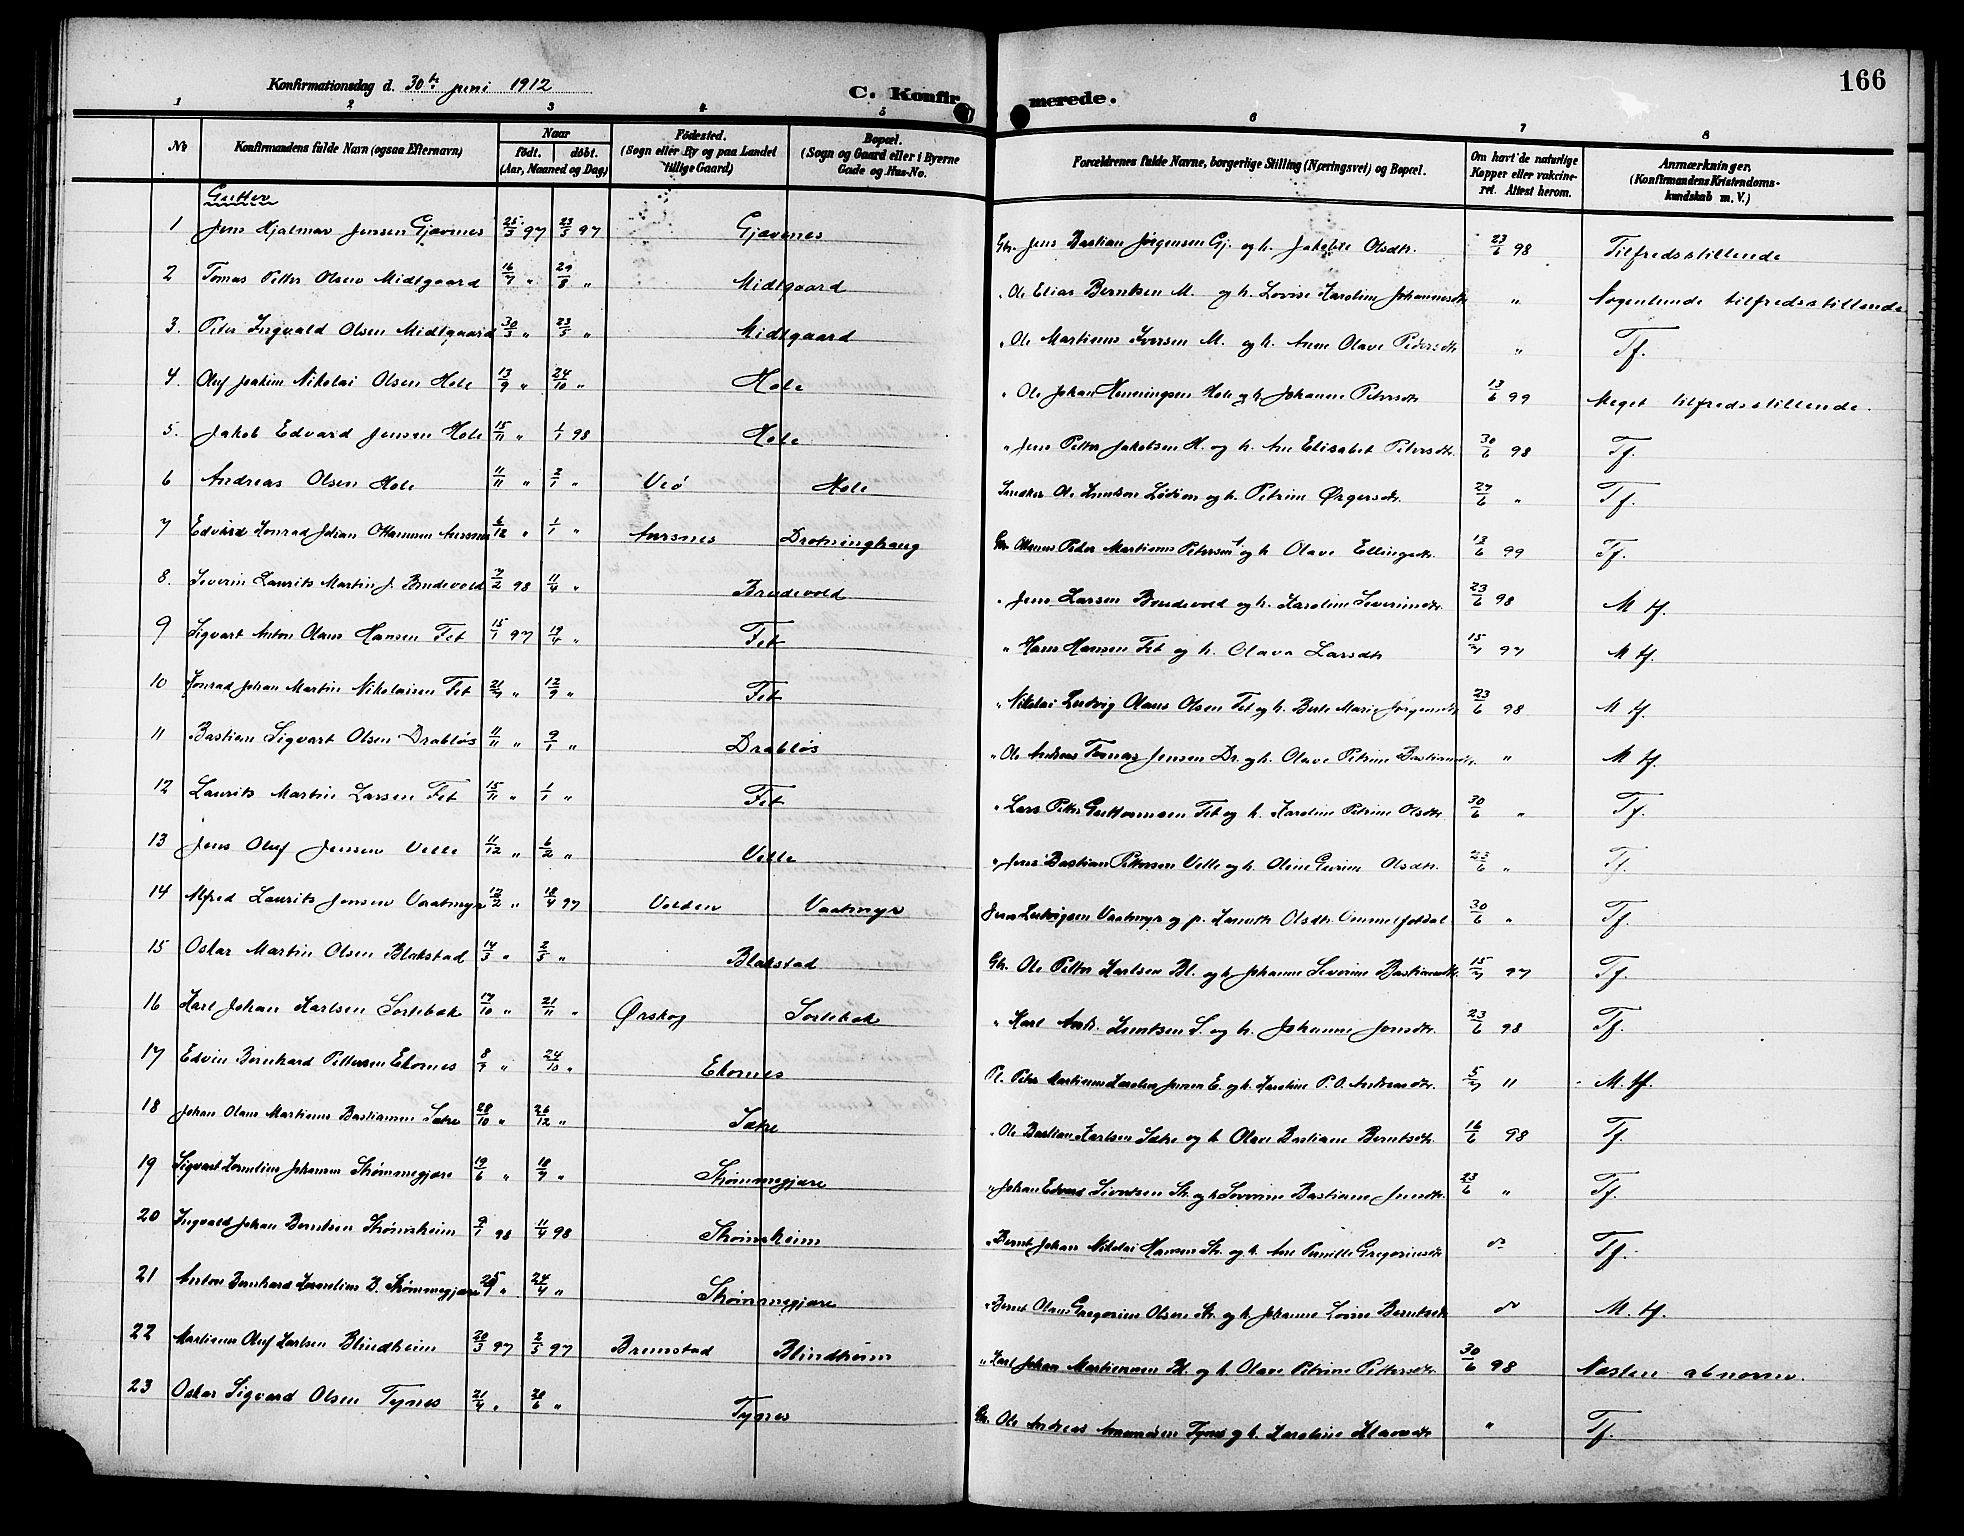 166
Konfirmationsdag d. 30te juni 1912
C. Konfirmerede.
1 2 3 4 5 6 7 8
No Konfirmandens fulde Navn (ogsaa Efternavn) Naar født. døbt. (Aar, Maaned og Dag) Fødested. (Sogn eller By og paa Landet tillige Gaard) Bopæl. (Sogn og Gaard eller i Byerne Gade og Hus-No. Forældrenes fulde Navne, borgerlige Stilling (Næringsvei) og Bopæl. Om havt de naturlige Kopper eller vakcineret. Attest herom. Anmærkninger. (Konfirmandens Kristendomskundskab m. V.)
Gutter
1 Jens Hjalmar Jensen Gjævenes 25/3 97 23/5 97 Gjævenes Gbr. Jens Bastian Jørgensen Gj. og h. Jakobte Olsdtr. 23/6 98 Tilfredsstillende
2 Tomas Petter Olsen Midtgaard 16/7 " 29/8 " Midtgaard " Ole Elias Berntsen M. og h. Lovise Karoline Johannesdtr " Nogenlunde tilfredsstillende
3. Peter Ingvald Olsen Midtgaard 30/3 " 23/5 " Midtgaard " Ole Martinus Iversen M. og h. Anne Olave Pedersdtr " Tf.
4. Oluf Joakim Nikolai Olsen Hole 13/9 " 24/10 " Hole " Ole Johan Henningsen Hole og h. Johanne Petersdtr 13/6 99 Meget tilfredsstillende.
5. Jakob Edvard Jensen Hole 15/11 " 1/1 98 Hole " Jens Petter Jakobsen H. og h. Ane Elisabet Petersdtr. 30/6 98 Tf.
6 Andreas Olsen Hole 11/11 " 2/1 " Veø Hole Snedker Ole Knutsen og h. Petrine 27/6 " Tf.
7 Edvard Konrad Johan Ottamsen Aursnes 6/12 " 1/1 " Aursnes Drotninghaug Gbr. Peter Martinus Petersen og h. Olave Ellingsdtr. 13/6 99 Tf.
8. Severin Laurits Martin J. Brudevold 7/2 98 11/4 " Brudevold " Jens Larsen Brudevold og h. Karoline Severinsdtr. 23/6 98 M tf.
9 Sigvart Anton Olaus Hansen Fet 15/1 97 19/4 " Fet " Hans Hansen Fet og h. Olava Larsdtr 15/7 97 M tf.
10 Konrad Johan Martin Nikolaisen Fet 21/7 " 12/9 " Fet " Nikolai Ludvig Olaus Olsen Fet og h. Berte Marie Jørgensdtr 23/6 98 M tf.
11 Bastian Sigvart Olsen Drabløs 11/11 " 9/1 " Drabløs " Ole Andreas Tomas Jensen Dr. og h. Olave Petrine Bastiansdtr " M tf.
12 Laurits Martin Larsen Fet 15/11 " 1/1 " Fet " Lars Petter Guttormsen Fet og h. Karoline Petrine Olsdtr. 30/6 " Tf.
13 Jens Oluf Jensen Velle 11/12 " 6/2 " Velle " Jens Bastian Pettersen Velle og h. Oline Olsdtr. 23/6 " Tf.
14 Alfred Laurits Jensen Vaatmyr 17/2 " 18/4 97 Velden Vaatmyr Jens Ludvigsen Vaatmyr og p. Olsdtr. 30/6 " Tf.
15 Oskar Martin Olsen Blakstad 14/3 " 2/5 " Blakstad Gbr. Ole Petter Karlsen Bl. og h. Johanne Severine Bastiansdtr. 15/7 97 Tf.
16 Karl Johan Karlsen Sortebak 17/10 " 21/11 " Ørskog Sortebak " Karl Andr. Knutsen S. og h. Johanne Jonsdtr. 23/6 98 Tf.
17 Edvin Bernhard Pettersen Ekornes 8/9 " 24/10 " Ekornes Peter Martinus Jensen E. og h. Karoline P. O. Andreasdtr. 5/7 11 M. tf.
18 Johan Olaus Martinus Bastiansen Sætre 28/10 " 26/12 " Sætre " Ole Bastian Karlsen Sætre og h. Olave Bastiane Berntsdtr. 16/6 98 Tf.
19 Sigvart Kornelius Johansen Strømmegjære 19/6 " 18/7 " Strømmegjære " Johan Edvard Sivertsen St. og h. Severine Bastiane 23/6 " Tf.
20 Ingvald Johan Berntsen Strømsheim 9/1 98 11/4 98 Strømsheim " Bernt Johan Nikolai Hansen St. og h. Ane Pernille Gregoriusdtr do Tf.
21 Anton Bernhard Kornelius B. Strømmegjære " 24/4 " Strømmegjære " Bernt Olaus Gregorius Olsen St. og h. Johanne Lovise Berntsdtr do M. tf.
22 Martinus Oluf Karlsen Blindheim 20/3 97 2/5 97 Brunstad Blindheim " Karl Johan Martinusen Bl. og h. Olave Petrine Pettersdtr 30/6 98 Næsten abnorm.
23 Oskar Sigvard Olsen Tynes 21/4 " 20/6 " Tynes Gbr. Ole Andreas Tynes og h. Karoline " Tf.